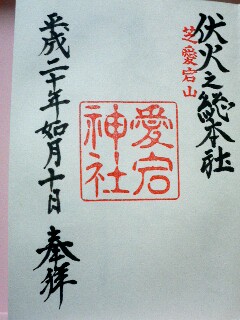 伏火之総本社
芝愛宕山
愛宕神社
平成二十年如月十日 奉拝